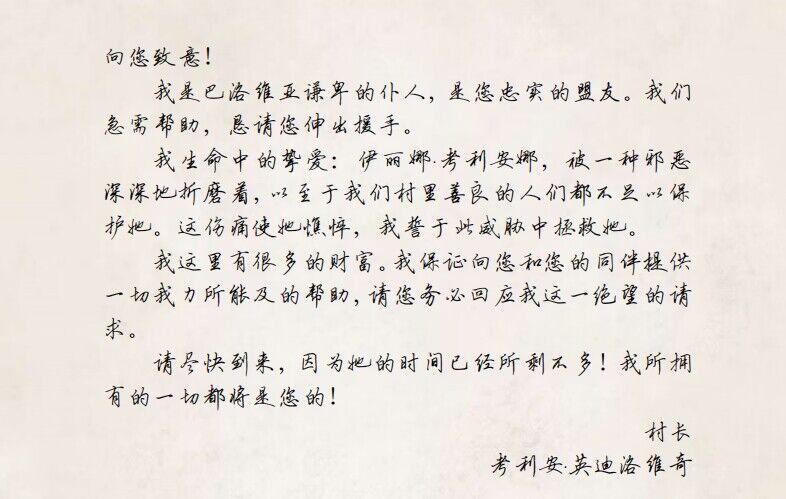 向您致意！
我是巴洛维亚谦卑的仆人，是您忠实的盟友。我们
急需帮助，恳请您伸出援手。
我生命中的挚爱：伊丽娜·考利安娜，被一种邪恶
深深地折磨着，以至于我们村里善良的人们都不足以保
护她。这伤痛使她憔悴，我誓于此威胁中拯救她。
我这里有很多的财富。我保证向您和您的同伴提供
一切我力所能及的帮助，请您务必回应我这一绝望的请
求。
请尽快到来，因为她的时间已经所剩不多！我所拥
有的一切都将是您的！
村长
考利安·英迪洛维奇